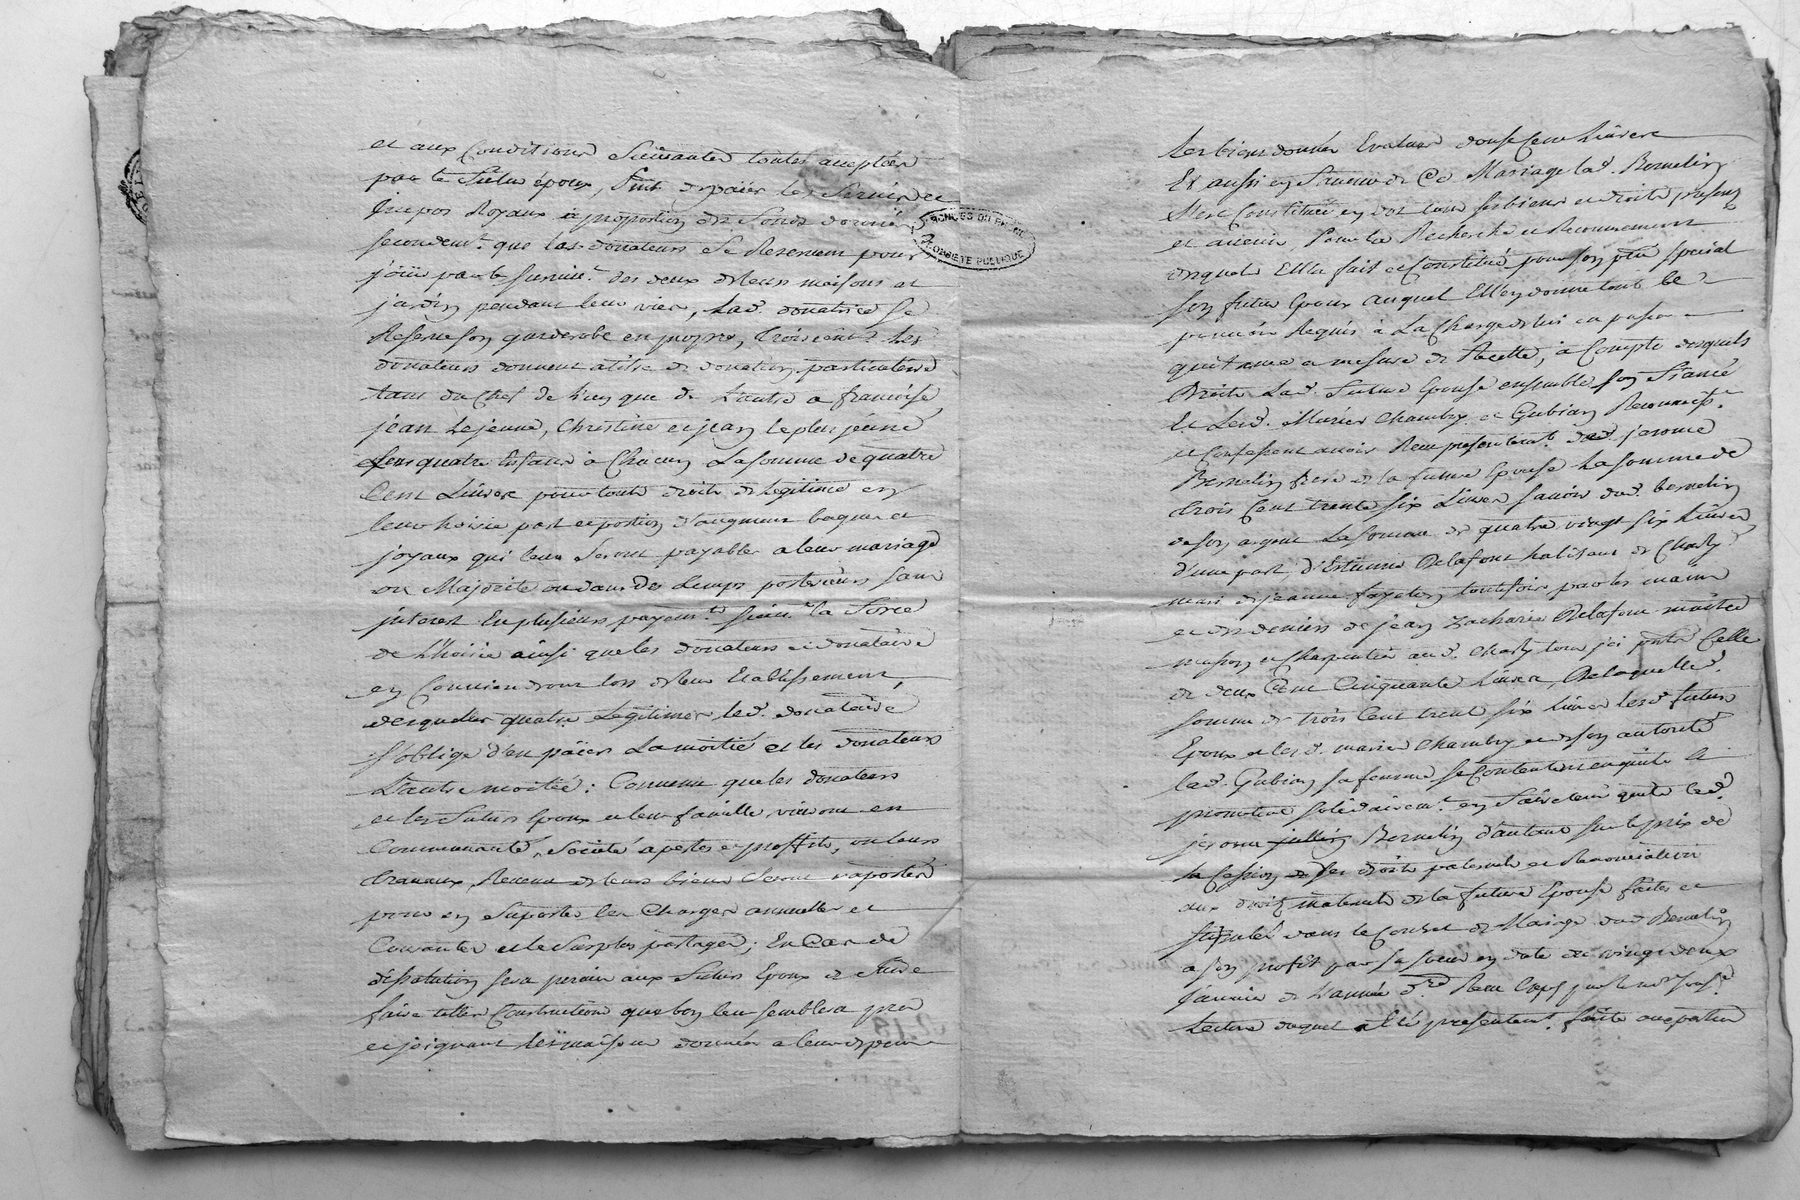 et aux Conditions Suivantes toutes acceptées
par le futur époux, Sint de païer les Services et
Impos Royaux a proportion des fonds donnés
secondem.t que les donateurs Se Reservent pour
joüir par le Surviv.t des deux de leurs maisons et
jardin pendant leur vies, Lad. donatrice Se
Reserve son garderobe en propre, Troisiem.t Les
donateurs donnent a titre de donation particuliere
tant du Chef de L'un que de L'autre a francoise,
jean Lejeune, Christine et jean le plus jeune
Leurs quatre Enfans à Chacun La somme de quatre
Cent Livres pour touts droits de Legitime en
leur hoirie part et portion d'augment bagues et
joyaux qui leur Seront payables a leur mariage
ou Majorité ou dans des temps posterieurs sans
interest En plusieurs payem.ts Suiv.t la Force
de L'hoirie ainsi que les donateurs et donataire
en Conviendront lors de leur Etablissement,
desquelles quatre Legitimes led. donataire
s'oblige d'en païer La moitié et les donateurs
L'autre moitié: Convenu que les donateurs
et les Futurs Epoux et leur famille, vivront en
Communauté, Société a pertes et proffits, ou leurs
travaux, Revenu de leurs biens Seront raportés
pour en Suporter les Charges annuelles et
Courantes et le Surplus partager; En Cas de
dépatation sera permis aux Futurs Epoux de
faire telles Constructions que bon leur semblera pres
et joignant les maisons données a leurs depens
ARCHIVES DU
PROPRIETE PUBLIQUE
Les biens donnés Evalués douse Cent Livres
Et aussi en Faveur de Ce Mariage lad. Bernelin
S'est Constituée en dot tous ses biens et droits presens
et avenir, Pour la Recherche et Recouvrement
desquels Elle a fait et Constitué pour son p.eur special
son futur Epoux auquel Elle en donne tout le
pouvoir Requis à La Charge de lui en passer
quittance a mesure de Recette, à Compte desquels
Droits Lad. Future Epouse ensemble son Fiancé
Et Lesd. Mariés Chambry et Gubian Reconnoiss.t
et Confessent avoir Reçu presentem.t dud. jerome
Bernelin frere de la future Epouse La somme de
trois Cent trente six Livres savoir dud. bernelin
de son argent La somme de quatre vingt six Livres
d'une part, d'Estienne Delafont habitant de Charly
mari de jeanne fayolin toutefois par les mains
et des deniers de jean Zacharie Delafont maitre
masson et Charpentier aud. Charly tous ici pnts Celle
de deux Cent Cinquante Livres, De laquelle d.
somme de trois Cent trente six Livres lesd. futurs
Epoux et lesd. mariés Chambry et de son autorité
lad. Gubian sa femme se Contentent en quitte et
promettent solidairem.t en Faire tenir quitte led.
jerome Bernelin d'autant sur le prix de
la Cession de ses droits paternels et Renonciation
aux droits maternels de la future Epouse faites et
stipulés dans le Contrat de Mariage dud. Bernelin
a son profit par sa soeur en date du vingt deux
Janvier de L'année d.re Recu
Lecture duquel a Eté presentem.t faite aux parties